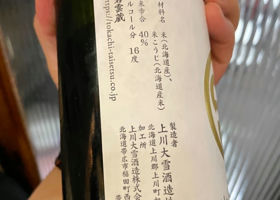 材料名
米(北海道産)、
米こうじ(北海道産米)
米歩合 40%
ルコール分 16度
雲蔵
https://tokachi-taisetsu.co.jp
製造者
上川大雪酒造
北海道上川郡上川町
加工所
上川大雪酒造株式会
北海道帯広市稲田町西